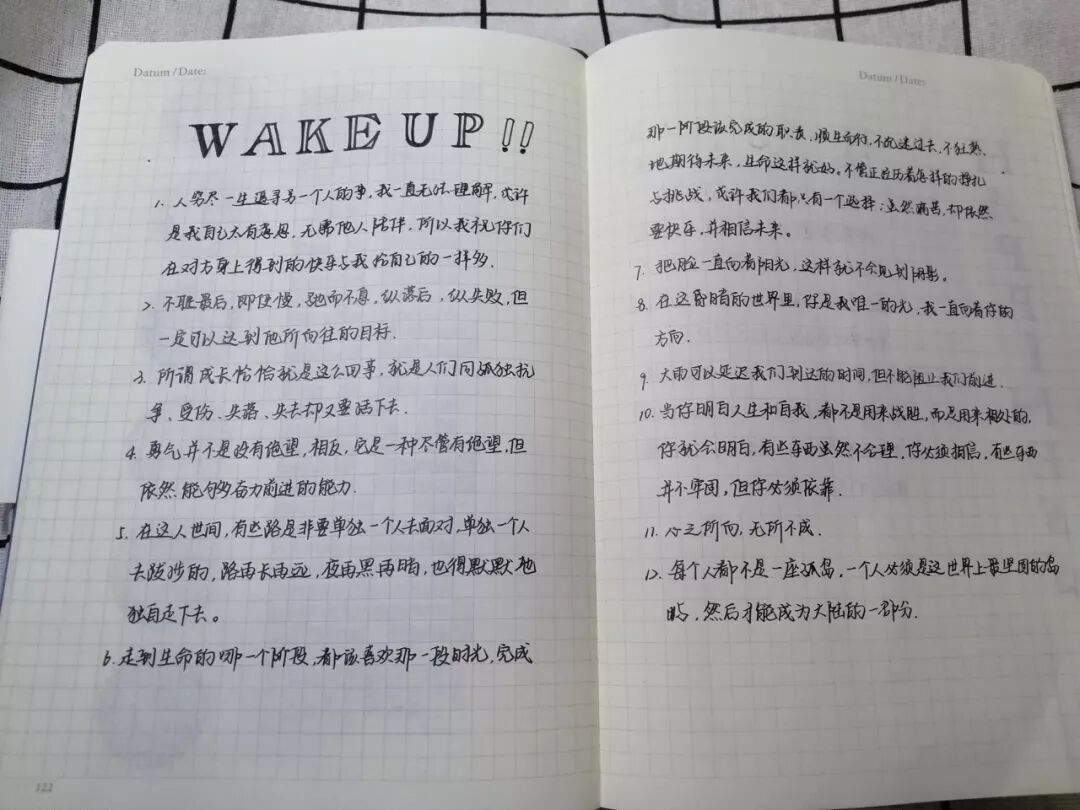 Datum / Date:
WAKE UP!!
1. 人穷尽一生追寻另一个人的事,我一直无法理解,或许
是我自己太有意思,无需他人陪伴,所以我祝你们
在对方身上得到的快乐与我给自己的一样多.
2. 不耻最后,即使慢,驰而不息,纵落后,纵失败,但
一定可以达到他所向往的目标.
3. 所谓成长恰恰就是这么回事,就是人们同孤独抗
争、受伤、失落、失去却又要活下去.
4. 勇气并不是没有绝望,相反,它是一种尽管有绝望,但
依然能够奋力前进的能力.
5. 在这人世间,有些路是非要单独一个人去面对,单独一个人
去跋涉的,路再长再远,夜再黑再暗,也得默默地
独自走下去。
6. 走到生命的哪一个阶段,都该喜欢那一段时光,完成
122
Datum / Date:
那一阶段该完成的职责,顺生而行,不沉迷过去,不狂热
地期待未来,生命这样就好。不管正经历着怎样的挣扎
与挑战,或许我们都只有一个选择:虽然痛苦,却依然
要快乐,并相信未来。
7. 把脸一直向着阳光,这样就不会见到阴影。
8. 在这昏暗的世界里,你是我唯一的光,我一直向着你的
方向.
9. 大雨可以延迟我们到达的时间,但不能阻止我们前进.
10. 当你明白人生和自我,都不是用来战胜,而是用来相处的,
你就会明白,有些东西虽然不合理,你必须相信,有些东西
并不牢固,但你必须依靠.
11. 心之所向,无所不成.
12. 每个人都不是一座孤岛,一个人必须是这世界上最坚固的岛
屿,然后才能成为大陆的一部分.